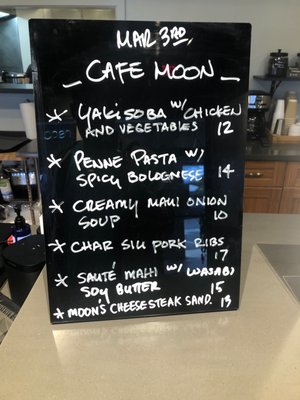 MAR 3RD.
— CAFE MOON —
* YAKISOBA W/ CHICKEN
AND VEGETABLES 12
* PENNE PASTA W/
SPICY BOLOGNESE 14
* CREAMY MAUI ONION
SOUP 10
* CHAR SIU PORK RIBS
17
* SAUTÉ MAHI W/ WASABI
SOY BUTTER 15
* MOON'S CHEESESTEAK SAND. 13